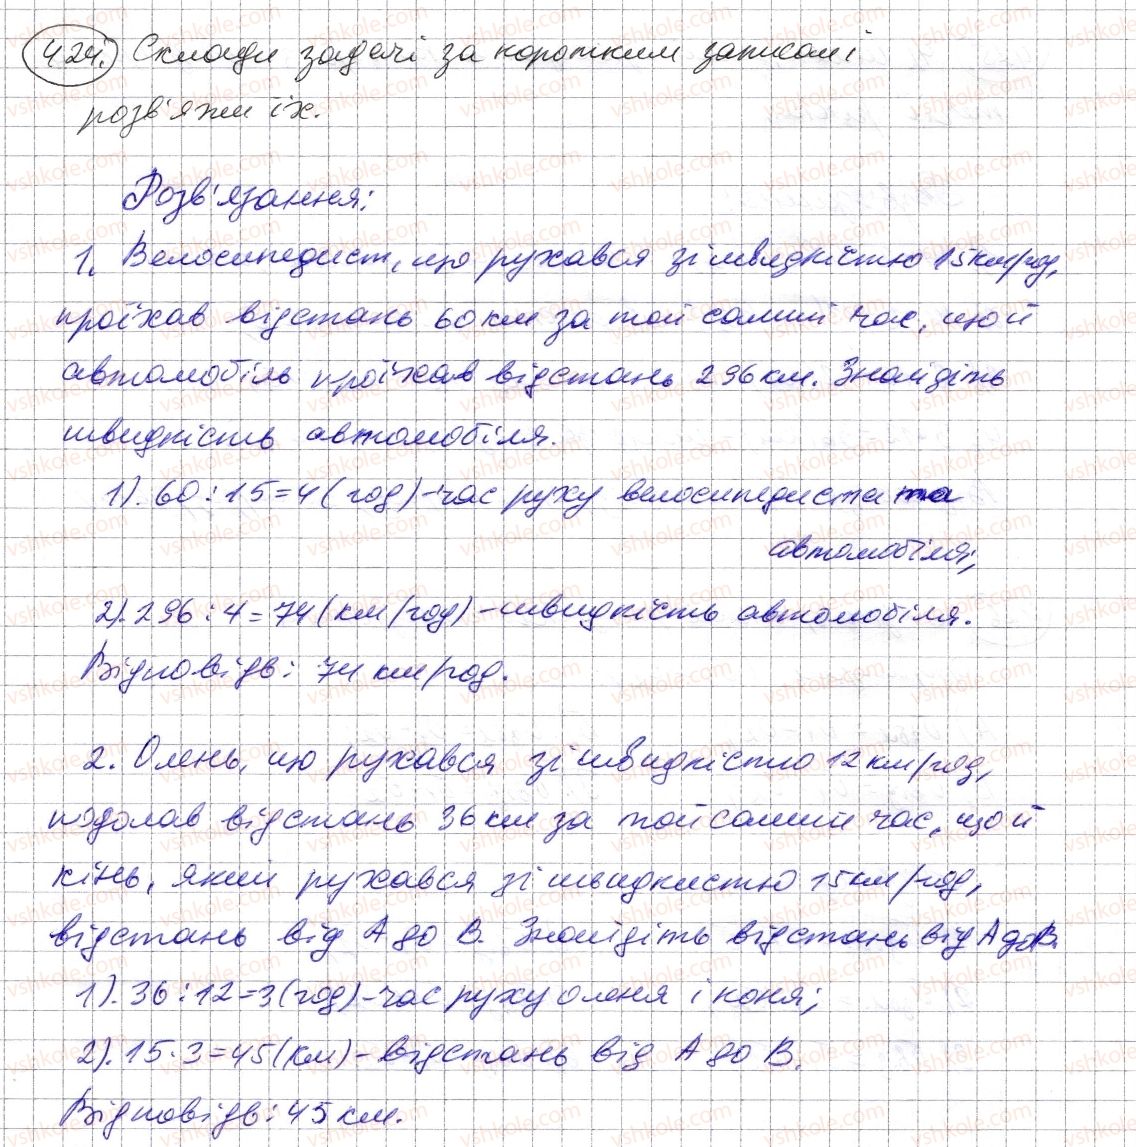 424. Склади задачі за коротким записом і
розв'яжи їх.
Розв'язання:
1. Велосипедист, що рухався зі швидкістю 15 км/год,
проїхав відстань 60 км за той самий час, що й
автомобіль проїхав відстань 296 км. Знайдіть
швидкість автомобіля.
1). 60 : 15 = 4 (год) - час руху велосипедиста та
автомобіля;
2). 296 : 4 = 74 (км/год) - швидкість автомобіля.
Відповідь: 74 км/год.
2. Олень, що рухався зі швидкістю 12 км/год,
подолав відстань 36 км за той самий час, що й
кінь, який рухався зі швидкистю 15 км/год,
відстань від А до В. Знайдіть відстань від А до В.
1). 36 : 12 = 3 (год) - час руху оленя і коня;
2). 15 · 3 = 45 (км) - відстань від А до В.
Відповідь: 45 км.